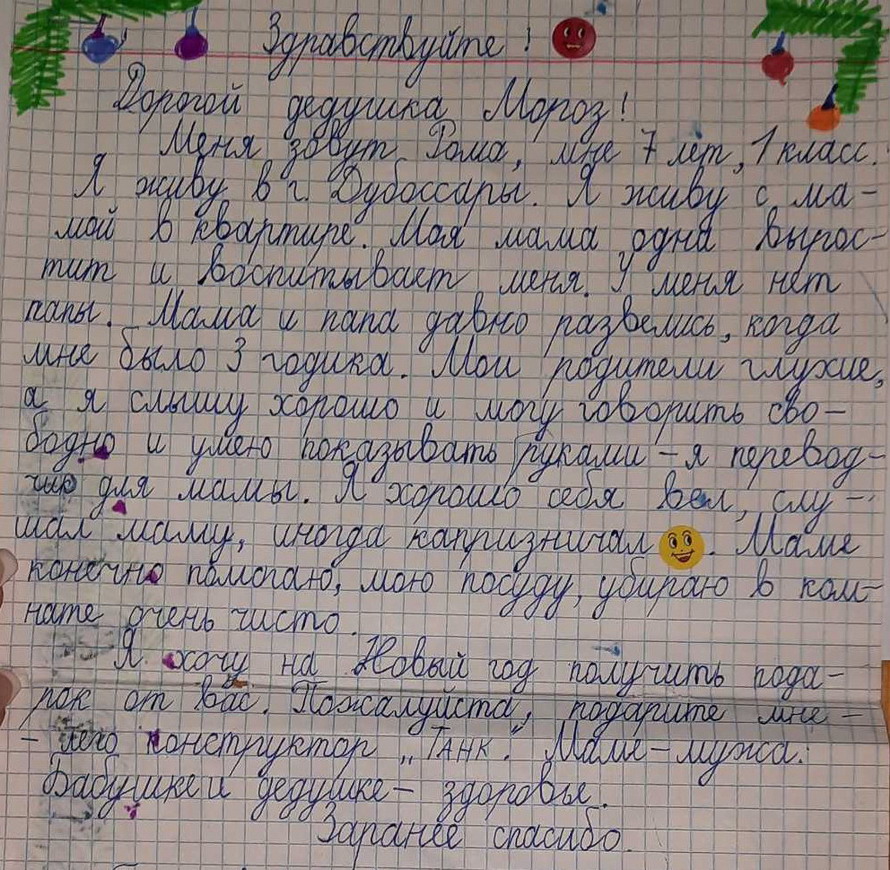 Здравствуйте!
Дорогой дедушка Мороз!
Меня зовут Рома, мне 7 лет, 1 класс.
Я живу в г. Дубоссары. Я живу с ма-
мой в квартире. Моя мама одна вырос-
тит и воспитывает меня. У меня нет
папы. Мама и папа давно развелись, когда
мне было 3 годика. Мои родители глухие,
а я слышу хорошо и могу говорить сво-
бодно и умею показывать руками - я перевод-
чир для мамы. Я хорошо себя вел, слу-
шал маму, иногда капризничал. Маме
конечно помогаю, мою посуду, убираю в ком-
нате очень чисто.
Я хочу на Новый год получить пода-
рок от вас. Пожалуйста, подарите мне -
- лего конструктор „Танк". Маме - мужа.
Бабушке и дедушке - здоровье.
Заранее спасибо.